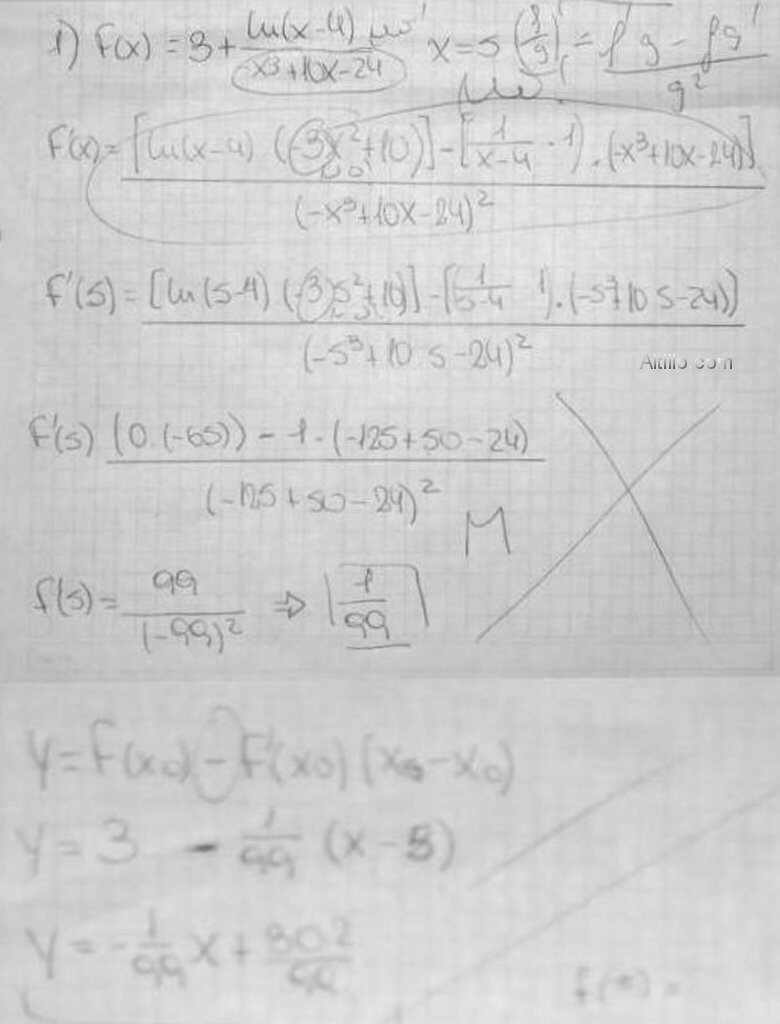 1) f(x) = 3 + ln(x-4) / -x³+10x-24 x=5 (f/g)' = f'g - fg' / g²
f'(x) = [ln(x-4) (-3x²+10)] - [1/x-4 · 1) · (-x³+10x-24)] / (-x³+10x-24)²
f'(5) = [ln(5-4) (-3)5²+10)] - [1/5-4 1) · (-5³+10 5-24)] / (-5³+10 5-24)²
Altillo.com
f'(5) (0 · (-65)) - 1 · (-125+50-24) / (-125+50-24)²
M
f'(5) = 99 / (-99)² ⇒ 1/99
y = f(x0) - f'(x0) (x - x0)
y = 3 - 1/99 (x-5)
y = -1/99 x + 302/99